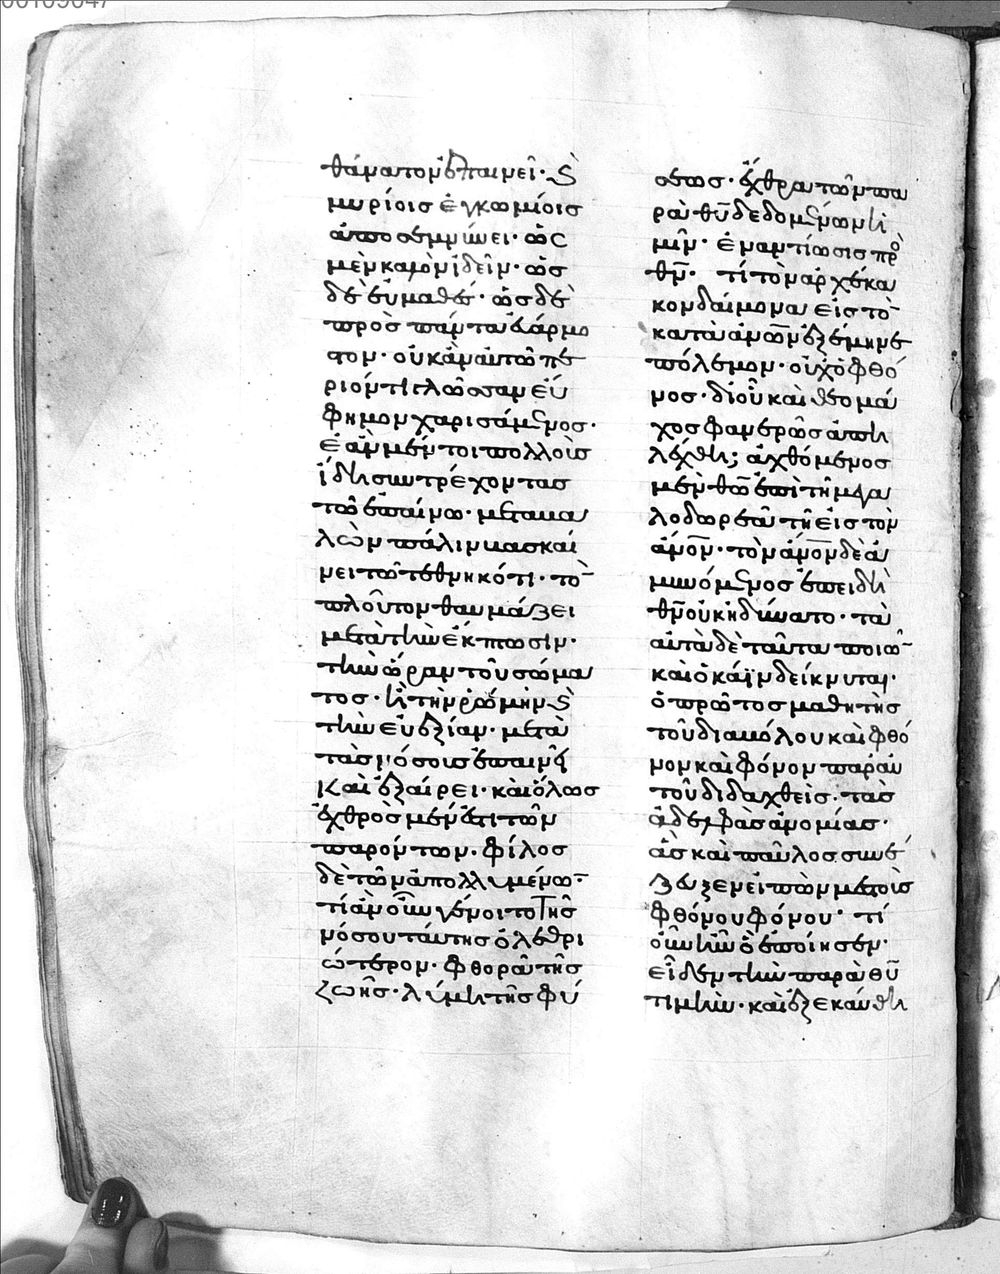 θάνατον ἐπαινεῖ· καὶ
μυρίοις ἐγκωμίοις
ἀποσεμνύνει· ὡς
μὲν καλὸν ἰδεῖν· ὡς
δὲ εὐμαθές· ὡς δὲ
πρὸς πάντα εὐάρμο
στον· οὐκ ἂν αὐτῶ πε
ριόντι γλῶσσαν εὔ
φημον χαρισάμενος·
ἐὰν μέντοι πολλοὺς
ἴδη συντρέχοντας
τῶ ἐπαίνω· μεταβα
λὼν πάλιν βασκαί
νει τῶ τεθνηκότι· τὸν
πλοῦτον θαυμάζει
μετὰ τὴν ἔκπτωσιν·
τὴν ὥραν τοῦ σώμα
τος· ἢ τὴν ῥώμην καὶ
τὴν εὐεξίαν· μετὰ
τὰς νόσους ἐπαινεῖ
καὶ ἐξαίρει· καὶ ὅλως
ἐχθρὸς μέν ἐστι τῶν
παρόντων· φίλος
δὲ τῶν ἀπολλυμένων·
τί ἂν οὖν γένοιτο τῆς
νόσου ταύτης ὀλεθρι
ώτερον· φθορὰ τῆς
ζωῆς· λύμη τῆς φύ
σεως· ἔχθρα τῶν πα
ρὰ θῦ δεδομένων ἡ
μῖν· ἐναντίωσις πρὸς
θν· τί τὸν ἀρχέκα
κον δαίμονα εἰς τὸν
κατὰ ἀνων ἐξέμηνε
πόλεμον· οὐχ ὁ φθό
νος· δι οὗ καὶ θεομά
χος φανερῶς ἀπη
λέχθη; ἀχθόμενος
μὲν θῶ ἐπὶ τῆ μεγα
λοδωρεᾶ τῆ εἰς τὸν
ἄνον· τὸν ἄνον δὲ ἀ
μυνόμενος ἐπειδὴ
θν οὐκ ἠδύνατο· τὰ
αὐτὰ δὲ ταῦτα ποιῶν
καὶ ὁ κάϊν δείκνυται·
ὁ πρῶτος μαθητὴς
τοῦ διαβόλου καὶ φθό
νον καὶ φόνον παρ αὐ
τοῦ διδαχθεὶς· τὰς
ἀδελφὰς ἀνομίας·
ἃς καὶ παῦλος συνέ
ζευξεν εἰπὼν μεστοὺς
φθόνου φόνου· τί
οὖν ἦν ὃ ἐποίησεν·
εἶδεν τὴν παρὰ θῦ
τιμὴν· καὶ ἐξεκαύθη